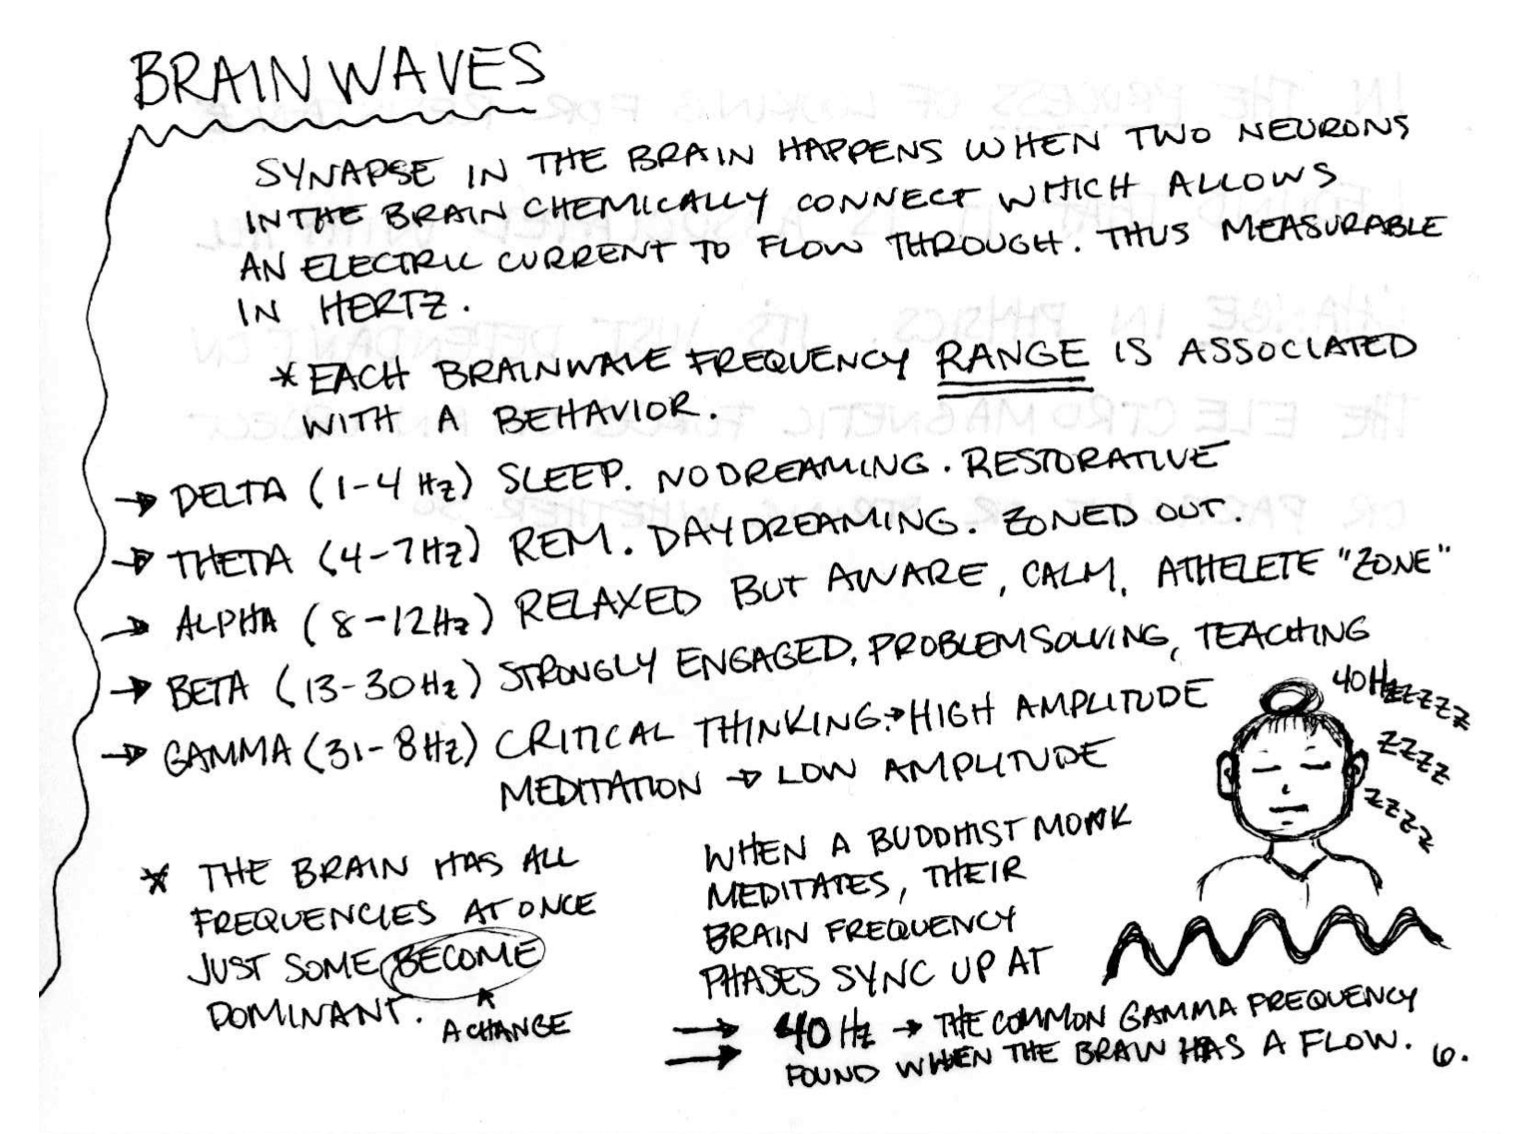 BRAINWAVES
SYNAPSE IN THE BRAIN HAPPENS WHEN TWO NEURONS
IN THE BRAIN CHEMICALLY CONNECT WHICH ALLOWS
AN ELECTRIC CURRENT TO FLOW THROUGH. THUS MEASURABLE
IN HERTZ.
* EACH BRAINWAVE FREQUENCY RANGE IS ASSOCIATED
WITH A BEHAVIOR.
→ DELTA (1-4 Hz) SLEEP. NO DREAMING. RESTORATIVE
→ THETA (4-7Hz) REM. DAYDREAMING. ZONED OUT.
→ ALPHA (8-12Hz) RELAXED BUT AWARE, CALM, ATHELETE "ZONE"
→ BETA (13-30Hz) STRONGLY ENGAGED, PROBLEM SOLVING, TEACHING
→ GAMMA (31-8Hz) CRITICAL THINKING → HIGH AMPLITUDE
MEDITATION → LOW AMPLITUDE
40Hzzzzz
zzzz
zzzz
* THE BRAIN HAS ALL
FREQUENCIES AT ONCE
JUST SOME BECOME
DOMINANT.
A CHANGE
WHEN A BUDDHIST MONK
MEDITATES, THEIR
BRAIN FREQUENCY
PHASES SYNC UP AT
→ 40 Hz → THE COMMON GAMMA FREQUENCY
→ FOUND WHEN THE BRAIN HAS A FLOW.
6.